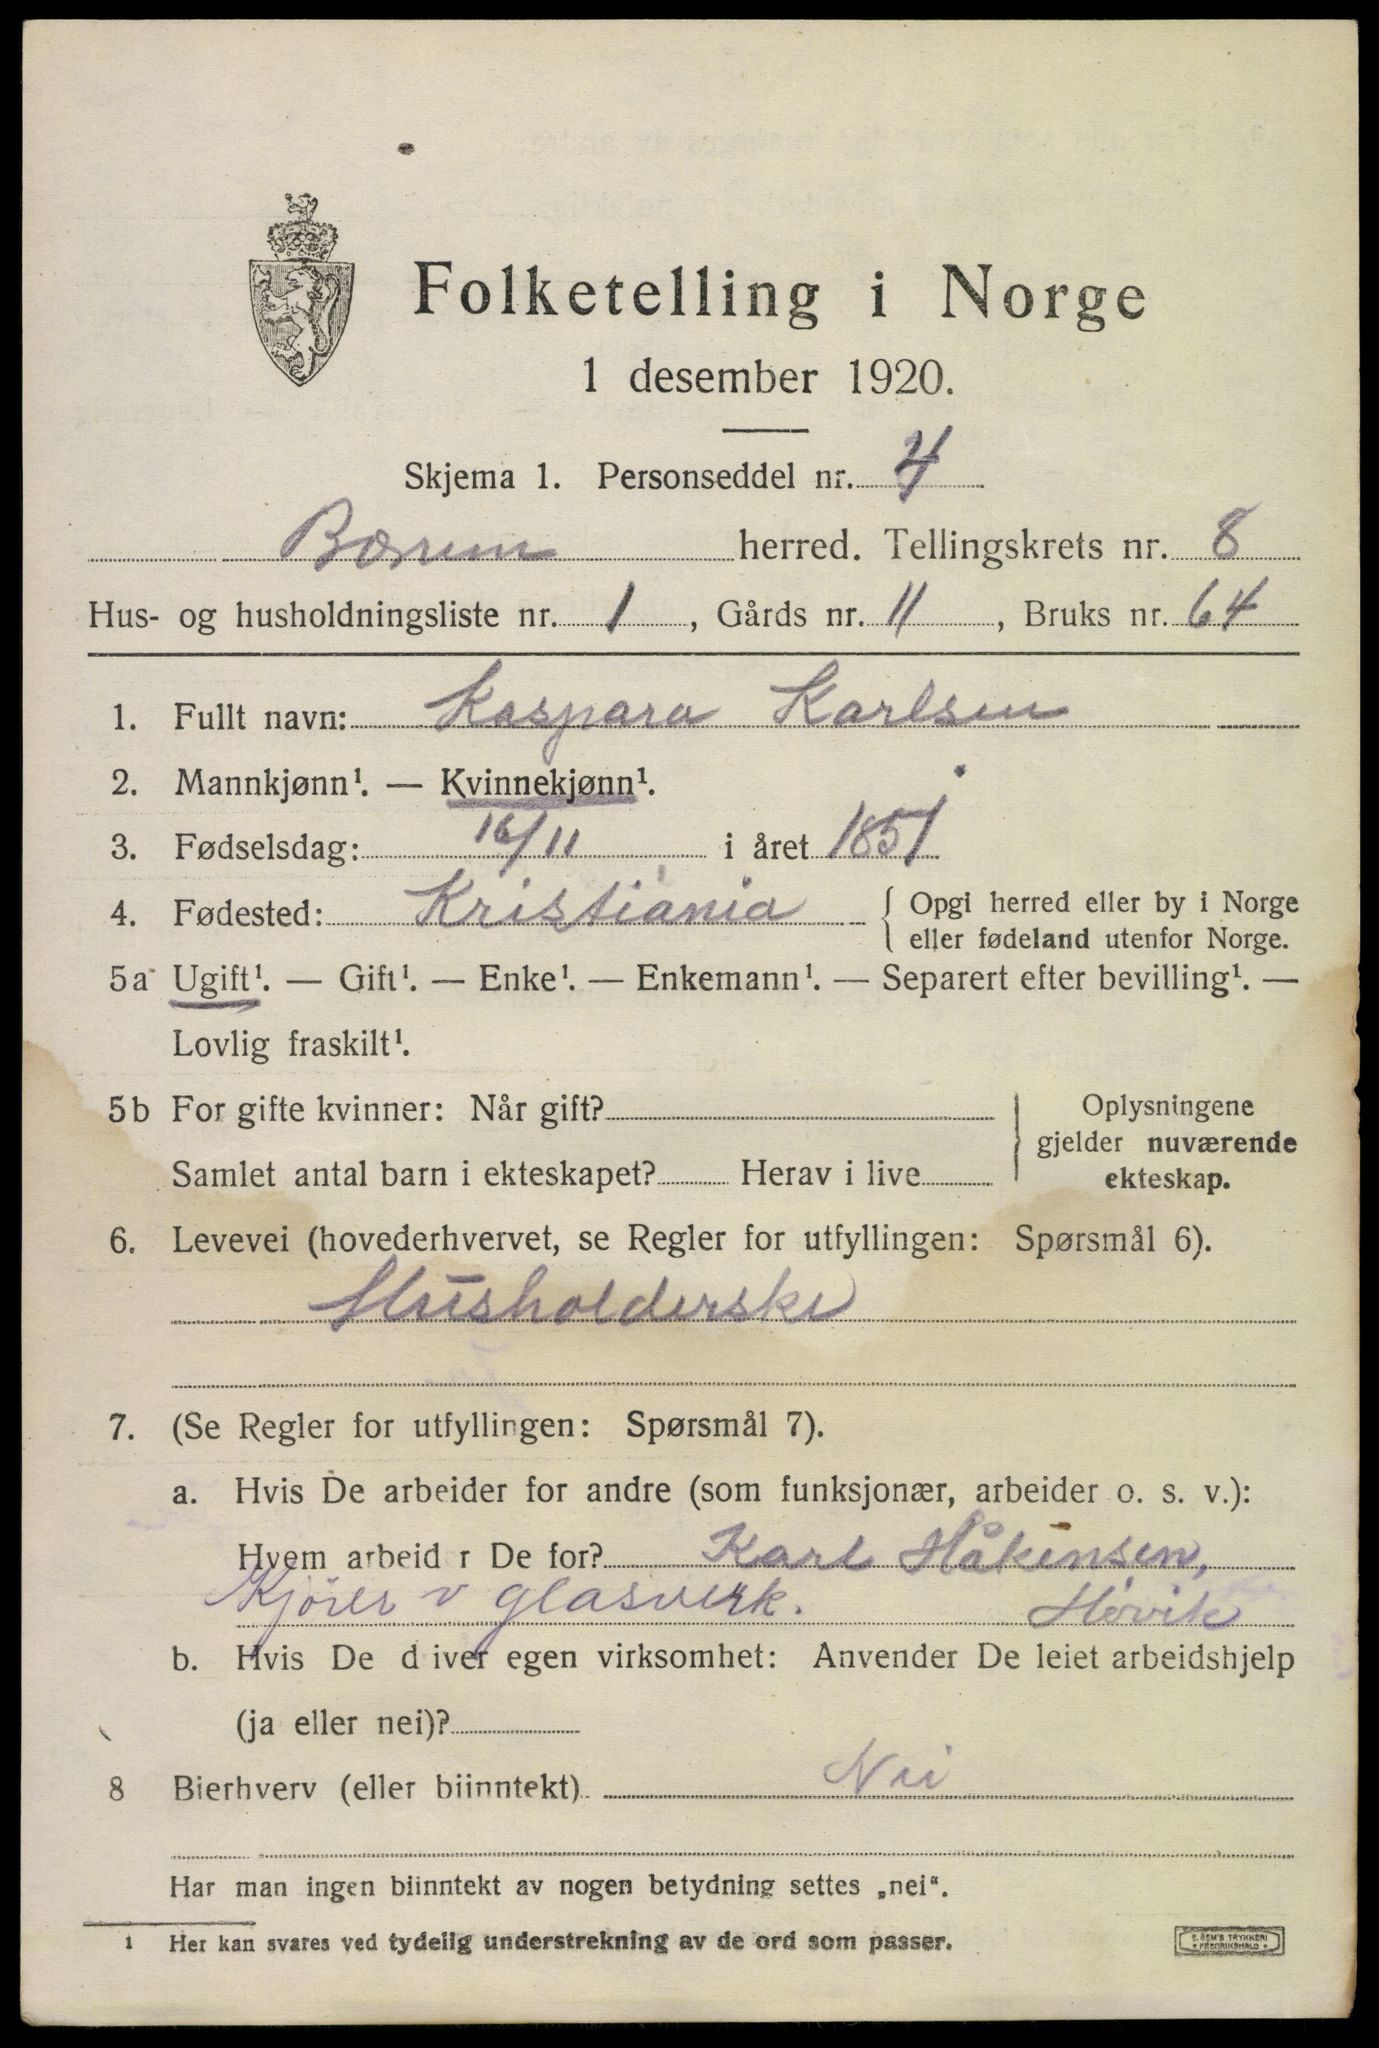 Folketelling i Norge
1 desember 1920.
Skjema 1. Personseddel nr. 4
Bærum herred. Tellingskrets nr. 8
Hus- og husholdningsliste nr. 1, Gårds nr. 11, Bruks nr. 64
1. Fullt navn: Kaspara Karlsen
2. Mannkjønn¹. — Kvinnekjønn¹.
3. Fødselsdag: 16/11 i året 1851
4. Fødested: Kristiania { Opgi herred eller by i Norge
eller fødeland utenfor Norge.
5a Ugift¹. — Gift¹. — Enke¹. — Enkemann¹. — Separert efter bevilling¹. —
Lovlig fraskilt¹.
5b For gifte kvinner: Når gift?
Samlet antal barn i ekteskapet? Herav i live
} Oplysningene
gjelder nuværende
ekteskap.
6. Levevei (hovederhvervet, se Regler for utfyllingen: Spørsmål 6).
Husholderske
7. (Se Regler for utfyllingen: Spørsmål 7).
a. Hvis De arbeider for andre (som funksjonær, arbeider o. s. v.):
Hvem arbeid r De for? Karl Håkensen,
Kjörer v glasverk. Høvik
b. Hvis De d iver egen virksomhet: Anvender De leiet arbeidshjelp
(ja eller nei)?
8 Bierhverv (eller biinntekt) Nei
Har man ingen biinntekt av nogen betydning settes „nei".
1 Her kan svares ved tydelig understrekning av de ord som passer.
E. SEM'S TRYKKERI
• FREDRIKSHALD •